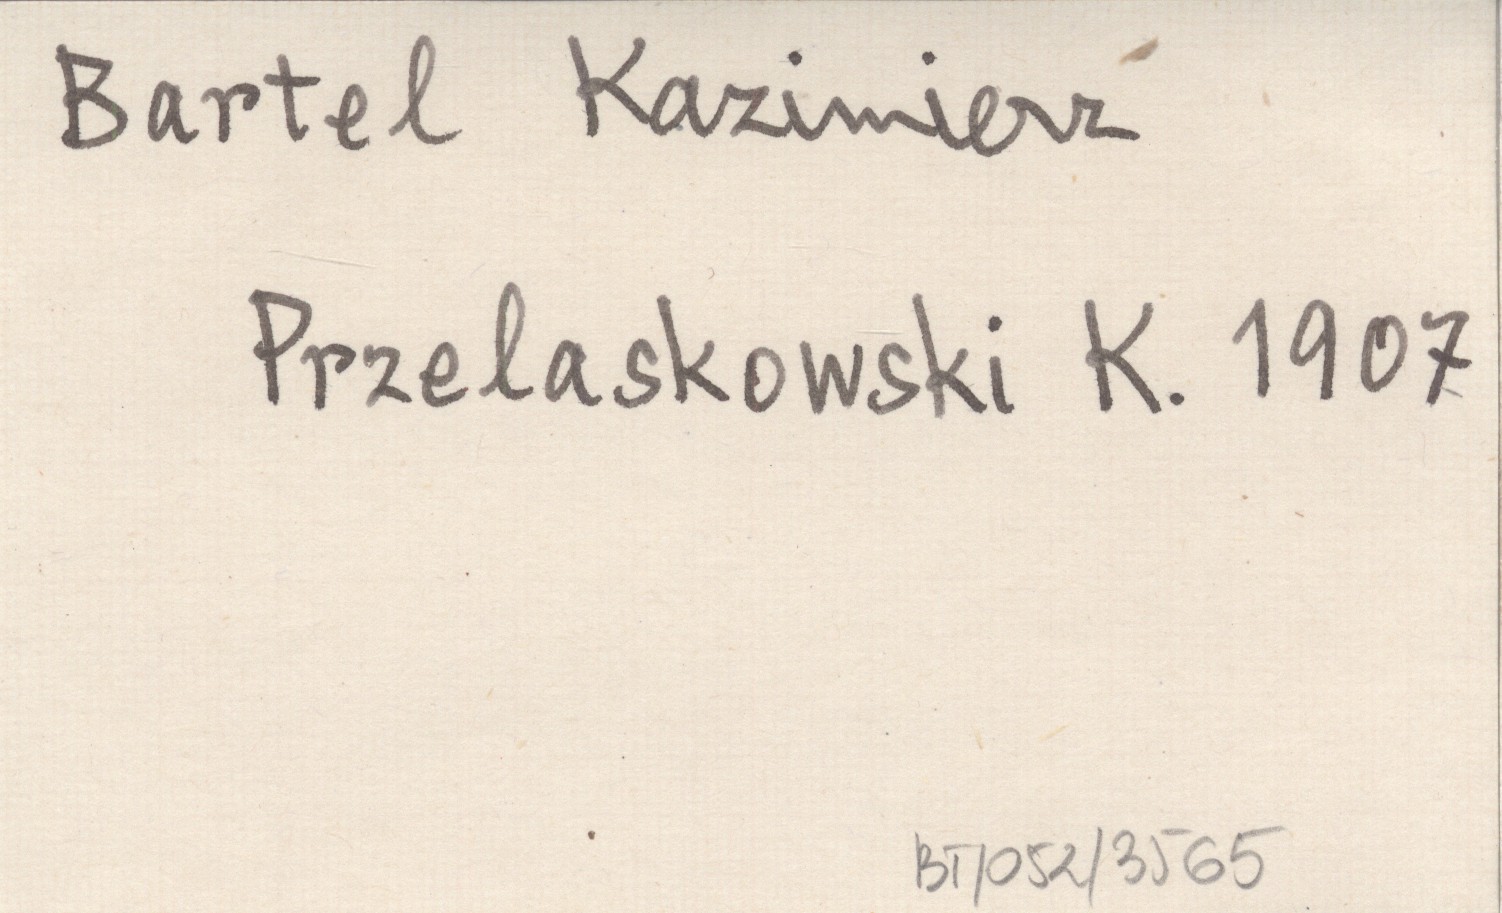 Bartel Kazimierz
Przelaskowski K. 1907
BT/052/3565